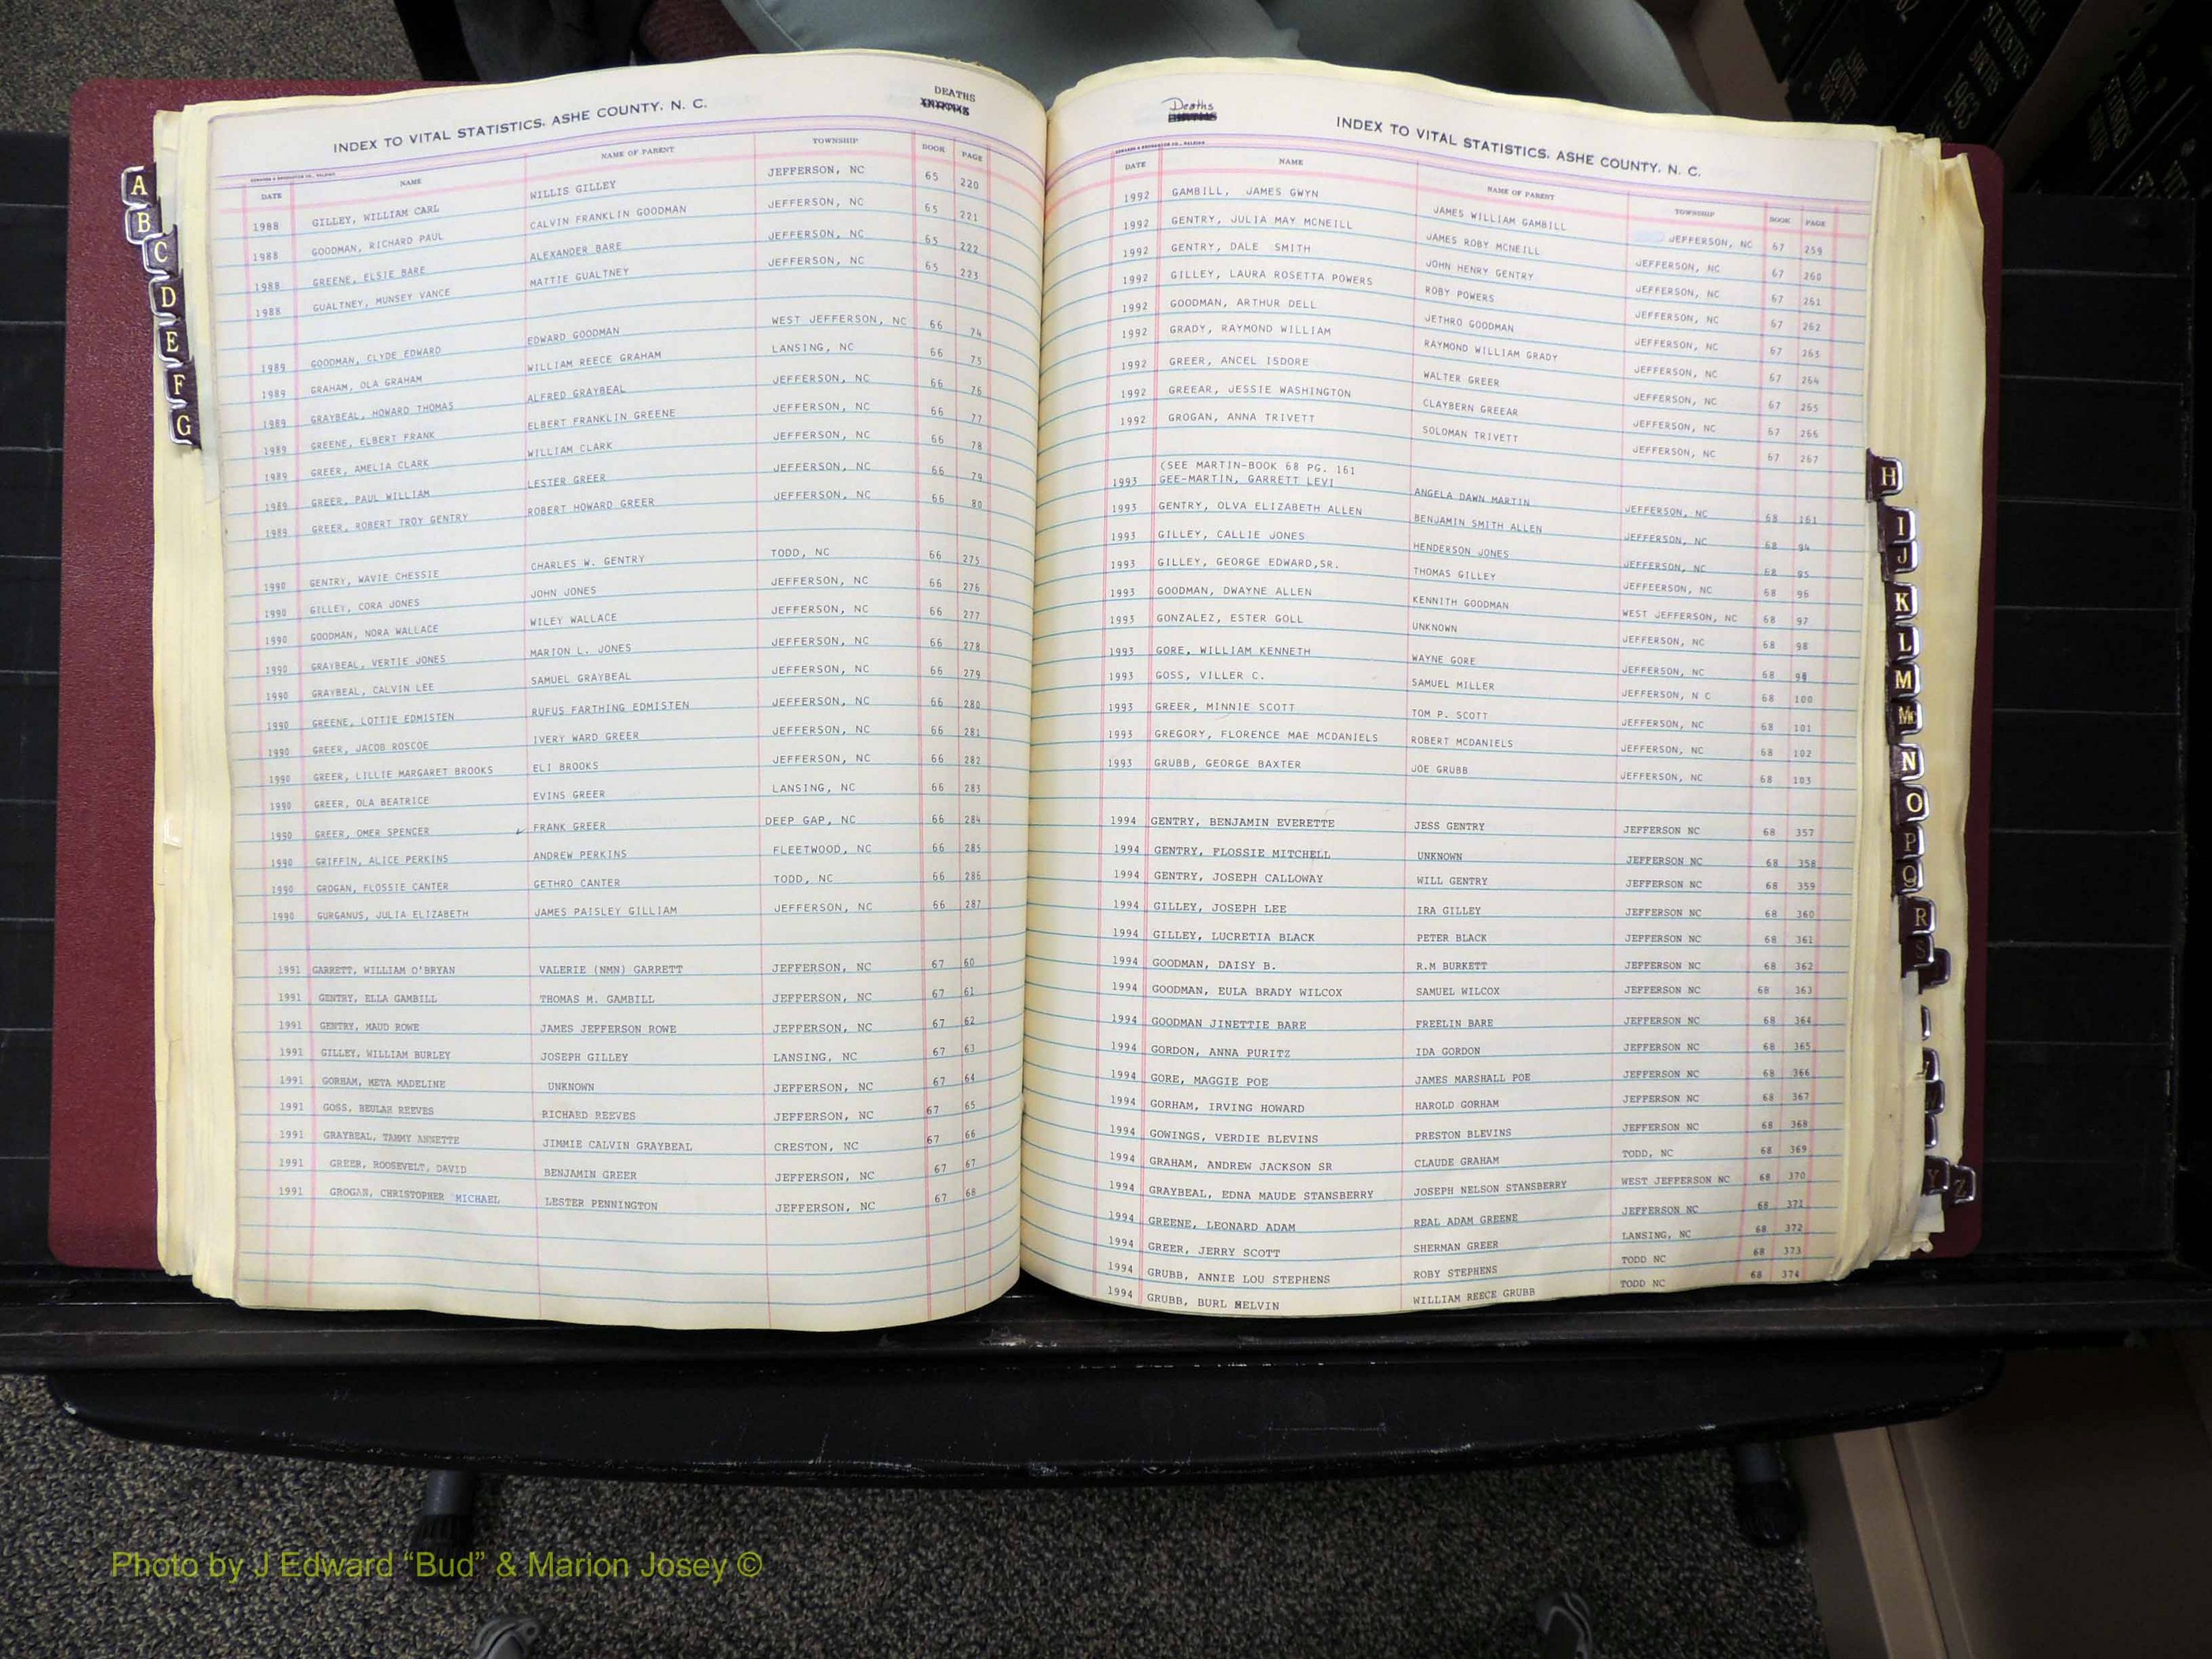 INDEX TO VITAL STATISTICS. ASHE COUNTY. N. C. DEATHS
DATE NAME NAME OF PARENT TOWNSHIP BOOK PAGE
1988 GILLEY, WILLIAM CARL WILLIS GILLEY JEFFERSON, NC 65 220
1988 GOODMAN, RICHARD PAUL CALVIN FRANKLIN GOODMAN JEFFERSON, NC 65 221
1988 GREENE, ELSIE BARE ALEXANDER BARE JEFFERSON, NC 65 222
1988 GUALTNEY, MUNSEY VANCE MATTIE GUALTNEY JEFFERSON, NC 65 223
1989 GOODMAN, CLYDE EDWARD EDWARD GOODMAN WEST JEFFERSON, NC 66 74
1989 GRAHAM, OLA GRAHAM WILLIAM REECE GRAHAM LANSING, NC 66 75
1989 GRAYBEAL, HOWARD THOMAS ALFRED GRAYBEAL JEFFERSON, NC 66 76
1989 GREENE, ELBERT FRANK ELBERT FRANKLIN GREENE JEFFERSON, NC 66 77
1989 GREER, AMELIA CLARK WILLIAM CLARK JEFFERSON, NC 66 78
1989 GREER, PAUL WILLIAM LESTER GREER JEFFERSON, NC 66 79
1989 GREER, ROBERT TROY GENTRY ROBERT HOWARD GREER JEFFERSON, NC 66 80
1990 GENTRY, WAVIE CHESSIE CHARLES W. GENTRY TODD, NC 66 275
1990 GILLEY, CORA JONES JOHN JONES JEFFERSON, NC 66 276
1990 GOODMAN, NORA WALLACE WILEY WALLACE JEFFERSON, NC 66 277
1990 GRAYBEAL, VERTIE JONES MARION L. JONES JEFFERSON, NC 66 278
1990 GRAYBEAL, CALVIN LEE SAMUEL GRAYBEAL JEFFERSON, NC 66 279
1990 GREENE, LOTTIE EDMISTEN RUFUS FARTHING EDMISTEN JEFFERSON, NC 66 280
1990 GREER, JACOB ROSCOE IVERY WARD GREER JEFFERSON, NC 66 281
1990 GREER, LILLIE MARGARET BROOKS ELI BROOKS JEFFERSON, NC 66 282
1990 GREER, OLA BEATRICE EVINS GREER LANSING, NC 66 283
1990 GREER, OMER SPENCER FRANK GREER DEEP GAP, NC 66 284
1990 GRIFFIN, ALICE PERKINS ANDREW PERKINS FLEETWOOD, NC 66 285
1990 GROGAN, FLOSSIE CANTER GETHRO CANTER TODD, NC 66 286
1990 GURGANUS, JULIA ELIZABETH JAMES PAISLEY GILLIAM JEFFERSON, NC 66 287
1991 GARRETT, WILLIAM O'BRYAN VALERIE (NMN) GARRETT JEFFERSON, NC 67 60
1991 GENTRY, ELLA GAMBILL THOMAS M. GAMBILL JEFFERSON, NC 67 61
1991 GENTRY, MAUD ROWE JAMES JEFFERSON ROWE JEFFERSON, NC 67 62
1991 GILLEY, WILLIAM BURLEY JOSEPH GILLEY LANSING, NC 67 63
1991 GORHAM, META MADELINE UNKNOWN JEFFERSON, NC 67 64
1991 GOSS, BEULAH REEVES RICHARD REEVES JEFFERSON, NC 67 65
1991 GRAYBEAL, TAMMY ANNETTE JIMMIE CALVIN GRAYBEAL CRESTON, NC 67 66
1991 GREER, ROOSEVELT, DAVID BENJAMIN GREER JEFFERSON, NC 67 67
1991 GROGAN, CHRISTOPHER MICHAEL LESTER PENNINGTON JEFFERSON, NC 67 68
A
B
C
D
E
F
G
Deaths INDEX TO VITAL STATISTICS. ASHE COUNTY. N. C.
DATE NAME NAME OF PARENT TOWNSHIP BOOK PAGE
1992 GAMBILL, JAMES GWYN JAMES WILLIAM GAMBILL JEFFERSON, NC 67 259
1992 GENTRY, JULIA MAY MCNEILL JAMES ROBY MCNEILL JEFFERSON, NC 67 260
1992 GENTRY, DALE SMITH JOHN HENRY GENTRY JEFFERSON, NC 67 261
1992 GILLEY, LAURA ROSETTA POWERS ROBY POWERS JEFFERSON, NC 67 262
1992 GOODMAN, ARTHUR DELL JETHRO GOODMAN JEFFERSON, NC 67 263
1992 GRADY, RAYMOND WILLIAM RAYMOND WILLIAM GRADY JEFFERSON, NC 67 264
1992 GREER, ANCEL ISDORE WALTER GREER JEFFERSON, NC 67 265
1992 GREEAR, JESSIE WASHINGTON CLAYBERN GREEAR JEFFERSON, NC 67 266
1992 GROGAN, ANNA TRIVETT SOLOMAN TRIVETT JEFFERSON, NC 67 267
(SEE MARTIN-BOOK 68 PG. 161
1993 GEE-MARTIN, GARRETT LEVI ANGELA DAWN MARTIN JEFFERSON, NC 68 161
1993 GENTRY, OLVA ELIZABETH ALLEN BENJAMIN SMITH ALLEN JEFFERSON, NC 68 94
1993 GILLEY, CALLIE JONES HENDERSON JONES JEFFERSON, NC 68 95
1993 GILLEY, GEORGE EDWARD,SR. THOMAS GILLEY JEFFEERSON, NC 68 96
1993 GOODMAN, DWAYNE ALLEN KENNITH GOODMAN WEST JEFFERSON, NC 68 97
1993 GONZALEZ, ESTER GOLL UNKNOWN JEFFERSON, NC 68 98
1993 GORE, WILLIAM KENNETH WAYNE GORE JEFFERSON, NC 68 99
1993 GOSS, VILLER C. SAMUEL MILLER JEFFERSON, N C 68 100
1993 GREER, MINNIE SCOTT TOM P. SCOTT JEFFERSON, NC 68 101
1993 GREGORY, FLORENCE MAE MCDANIELS ROBERT MCDANIELS JEFFERSON, NC 68 102
1993 GRUBB, GEORGE BAXTER JOE GRUBB JEFFERSON, NC 68 103
1994 GENTRY, BENJAMIN EVERETTE JESS GENTRY JEFFERSON NC 68 357
1994 GENTRY, FLOSSIE MITCHELL UNKNOWN JEFFERSON NC 68 358
1994 GENTRY, JOSEPH CALLOWAY WILL GENTRY JEFFERSON NC 68 359
1994 GILLEY, JOSEPH LEE IRA GILLEY JEFFERSON NC 68 360
1994 GILLEY, LUCRETIA BLACK PETER BLACK JEFFERSON NC 68 361
1994 GOODMAN, DAISY B. R.M BURKETT JEFFERSON NC 68 362
1994 GOODMAN, EULA BRADY WILCOX SAMUEL WILCOX JEFFERSON NC 68 363
1994 GOODMAN JINETTIE BARE FREELIN BARE JEFFERSON NC 68 364
1994 GORDON, ANNA PURITZ IDA GORDON JEFFERSON NC 68 365
1994 GORE, MAGGIE POE JAMES MARSHALL POE JEFFERSON NC 68 366
1994 GORHAM, IRVING HOWARD HAROLD GORHAM JEFFERSON NC 68 367
1994 GOWINGS, VERDIE BLEVINS PRESTON BLEVINS JEFFERSON NC 68 368
1994 GRAHAM, ANDREW JACKSON SR CLAUDE GRAHAM TODD, NC 68 369
1994 GRAYBEAL, EDNA MAUDE STANSBERRY JOSEPH NELSON STANSBERRY WEST JEFFERSON NC 68 370
1994 GREENE, LEONARD ADAM REAL ADAM GREENE JEFFERSON NC 68 371
1994 GREER, JERRY SCOTT SHERMAN GREER LANSING, NC 68 372
1994 GRUBB, ANNIE LOU STEPHENS ROBY STEPHENS TODD NC 68 373
1994 GRUBB, BURL MELVIN WILLIAM REECE GRUBB TODD NC 68 374
H
I
J
K
L
M
Mc
N
O
P
Q
R
S
Y
Z
ASHE COUNTY
VITAL STATISTICS BIRTHS 1963
Photo by J Edward “Bud” & Marion Josey ©